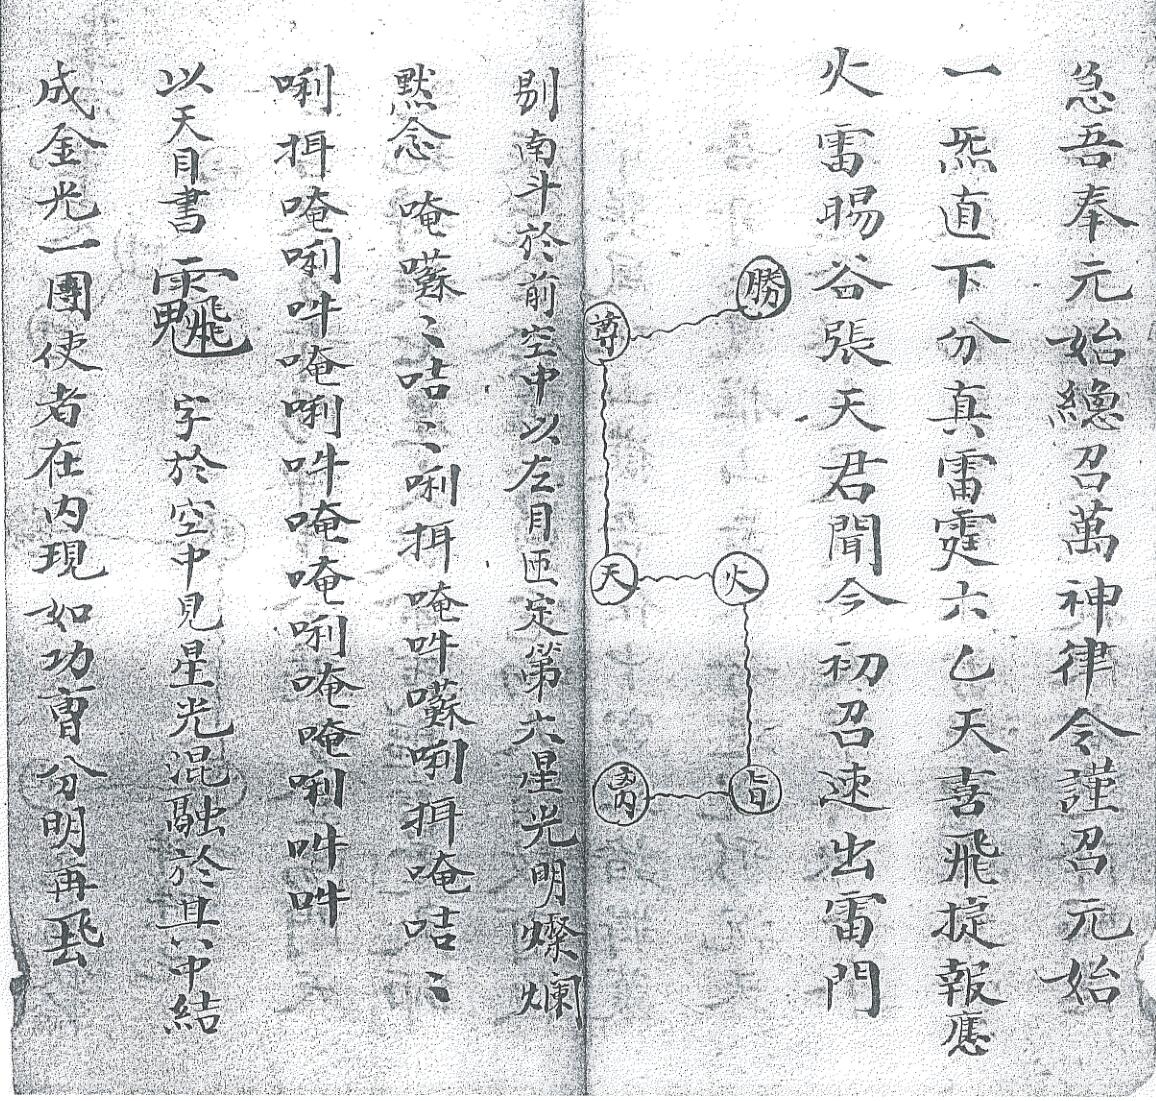 急吾奉元始總召萬神律令謹召元始
一炁直下分真雷霆六乙天喜飛捷報應
火雷暘谷張天君聞今初召速出雷門
勝
尊
天
火
旨
剔南斗於前空中以左目𠥱定第六星光明燦爛
默念唵囌〻咭〻唎挕唵吽囌唎挕唵咭〻
唎挕唵唎吽唵唎吽唵唵唎唵唵唎吽吽
以天目書字於空中見星光混融於其中結
成金光一團使者在內現如功曹分明再飛